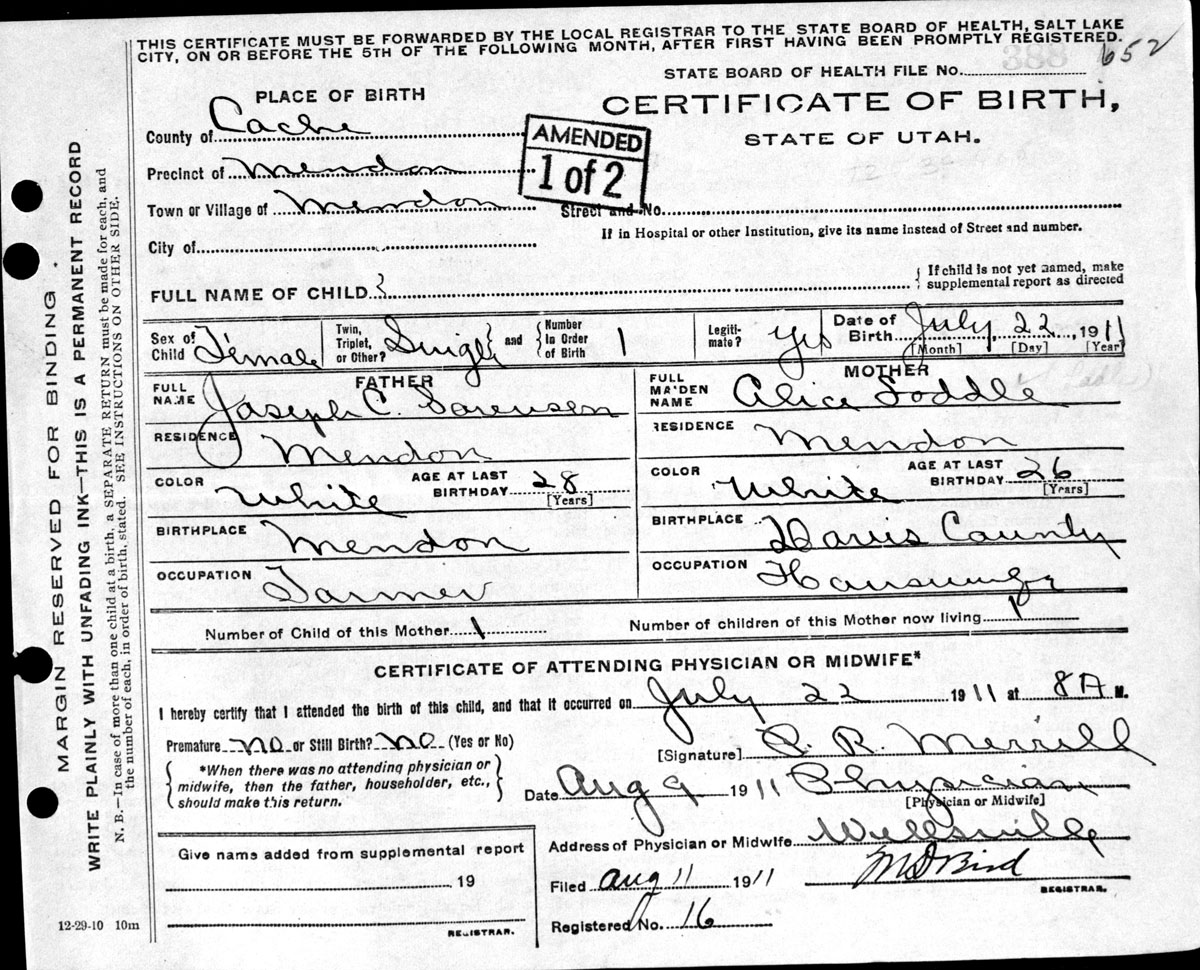 THIS CERTIFICATE MUST BE FORWARDED BY THE LOCAL REGISTRAR TO THE STATE BOARD OF HEALTH, SALT LAKE
CITY, ON OR BEFORE THE 5TH OF THE FOLLOWING MONTH, AFTER FIRST HAVING BEEN PROMPTLY REGISTERED.
388 652
STATE BOARD OF HEALTH FILE No.
PLACE OF BIRTH
CERTIFICATE OF BIRTH,
STATE OF UTAH.
County of Cache
AMENDED
1 of 2
Precinct of Mendon
Town or Village of Mendon Street and No.
City of If in Hospital or other Institution, give its name instead of Street and number.
FULL NAME OF CHILD { If child is not yet named, make
supplemental report as directed
Sex of Child Female Twin, Triplet, or Other? Single and Number In Order of Birth 1 Legiti-mate? Yes Date of Birth July 22, 1911
[Month] [Day] [Year]
FATHER
FULL NAME Joseph C. Sorensen
RESIDENCE Mendon
COLOR White AGE AT LAST BIRTHDAY 28 [Years]
BIRTHPLACE Mendon
OCCUPATION Farmer
MOTHER
FULL MAIDEN NAME Alice Soddle
RESIDENCE Mendon
COLOR White AGE AT LAST BIRTHDAY 26 [Years]
BIRTHPLACE County
OCCUPATION
Number of Child of this Mother 1 Number of children of this Mother now living 1
CERTIFICATE OF ATTENDING PHYSICIAN OR MIDWIFE*
I hereby certify that I attended the birth of this child, and that it occurred on July 22 1911 at 8 A. M.
Premature no or Still Birth? no (Yes or No)
[Signature] P. R. Merrill
{ *When there was no attending physician or
midwife, then the father, householder, etc.,
should make this return. }
Date Aug 9 1911 Physician
[Physician or Midwife]
Give name added from supplemental report
19
REGISTRAR.
Address of Physician or Midwife Wellsville
Filed Aug 11 1911 M D Bird
REGISTRAR.
Registered No. 16
12-29-10 10m
MARGIN RESERVED FOR BINDING.
WRITE PLAINLY WITH UNFADING INK—THIS IS A PERMANENT RECORD
N. B.—In case of more than one child at a birth, a SEPARATE RETURN must be made for each, and
the number of each, in order of birth, stated. SEE INSTRUCTIONS ON OTHER SIDE.